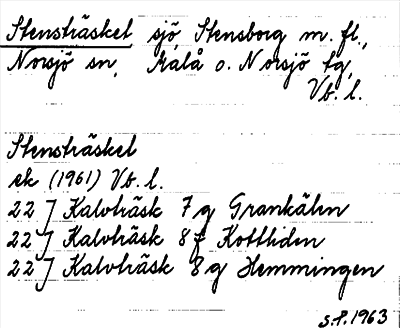 Stensträsket sjö, Stensborg m.fl.,
Norsjö sn, Malå o. Norsjö tg,
Vb. l.
Stensträsket
ek (1961) Vb. l.
22 J Kalvträsk 7 g Grankälen
22 J Kalvträsk 8 f Kottliden
22 J Kalvträsk 8 g Hemmingen
S.P. 1963